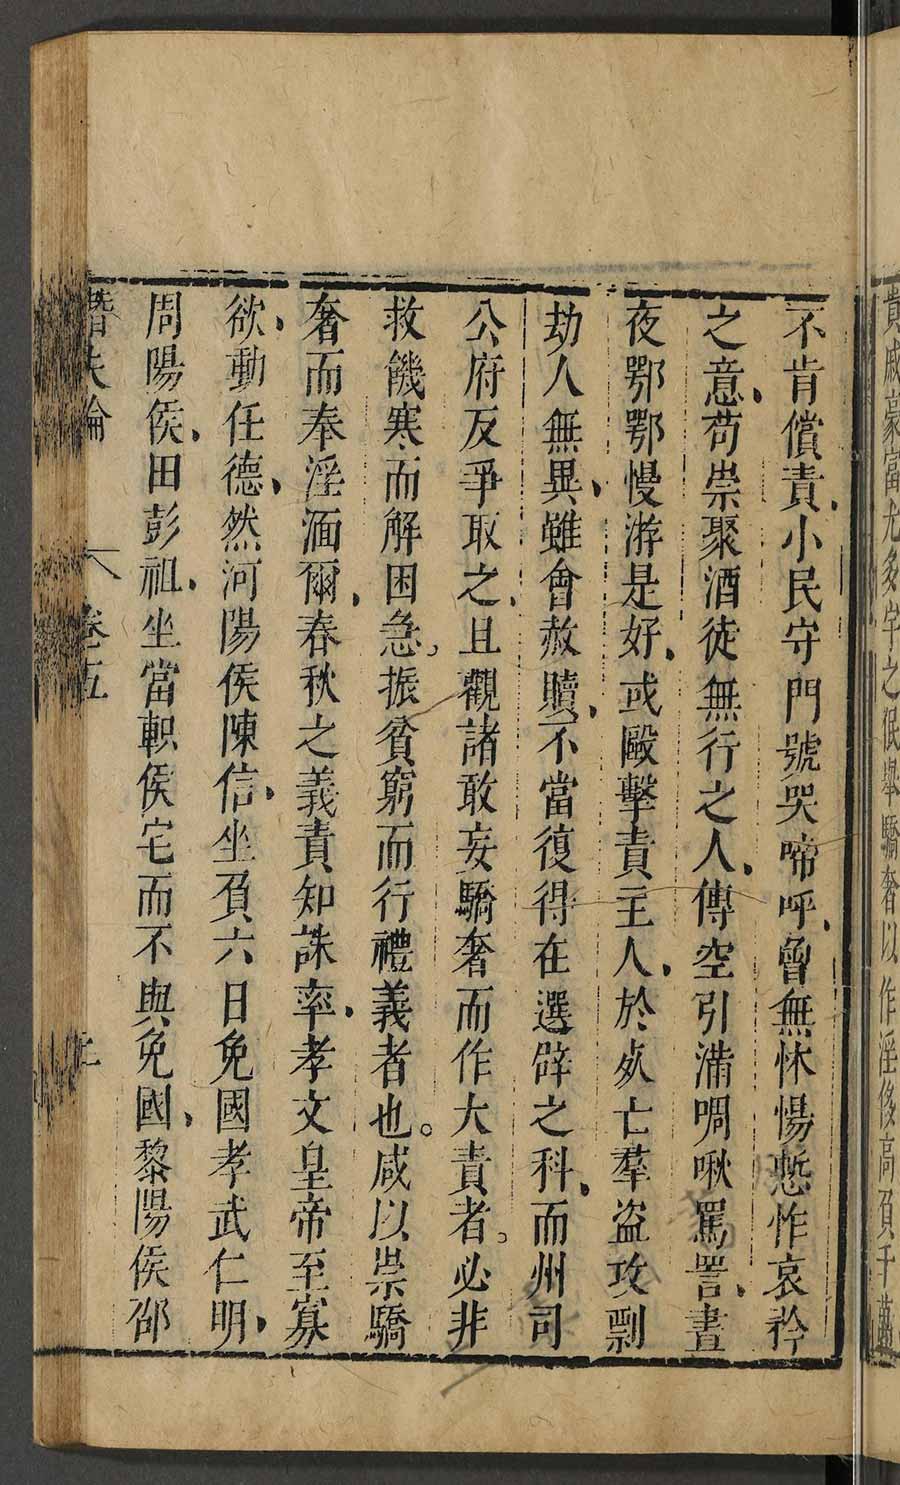 貴戚豪富尤多字之俱舉驕奢以作淫侈高負千萬
不肯償責小民守門號哭啼呼曾無怵惕慙怍哀矜
之意苟崇聚酒徒無行之人傳空引滿啁啾罵詈晝
夜鄂鄂慢游是好或毆擊責主人於死亡羣盜攻剽
劫人無異雖會赦贖不當復得在選辟之科而州司
公府反爭取之且觀諸敢妄驕奢而作大責者必非
救饑寒而解困急振貧窮而行禮義者也咸以崇驕
奢而奉淫湎爾春秋之義責知誅率孝文皇帝至寡
欲動任德然河陽侯陳信坐負六日免國孝武仁明
周陽侯田彭祖坐當軹侯宅而不與免國黎陽侯邵
潛夫論 卷五